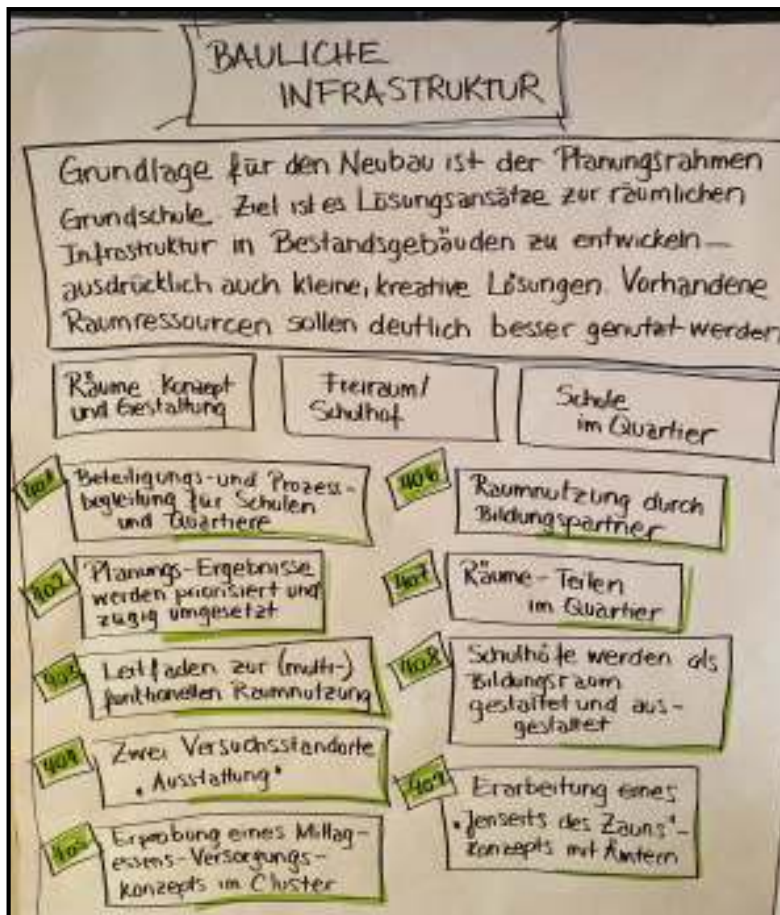 BAULICHE
INFRASTRUKTUR
Grundlage für den Neubau ist der Planungsrahmen
Grundschule. Ziel ist es Lösungsansätze zur räumlichen
Infrastruktur in Bestandsgebäuden zu entwickeln –
ausdrücklich auch kleine, kreative Lösungen. Vorhandene
Raumressourcen sollen deutlich besser genutzt werden
Räume Konzept
und Gestaltung
Freiraum/
Schulhof
Schule
im Quartier
401
Beteiligungs- und Prozess-
begleitung für Schulen
und Quartiere
402
Planungs-Ergebnisse
werden priorisiert und
zügig umgesetzt
403
Leitfaden zur (multi-)
funktionellen Raumnutzung
404
Zwei Versuchsstandorte
"Ausstattung"
405
Erprobung eines Mittag-
essens-Versorgungs-
konzepts im Cluster
406
Raumnutzung durch
Bildungspartner
407
Räume-Teilen
im Quartier
408
Schulhöfe werden als
Bildungsraum
gestaltet und aus-
gestattet
409
Erarbeitung eines
"Jenseits des Zauns"-
Konzepts mit Ämtern